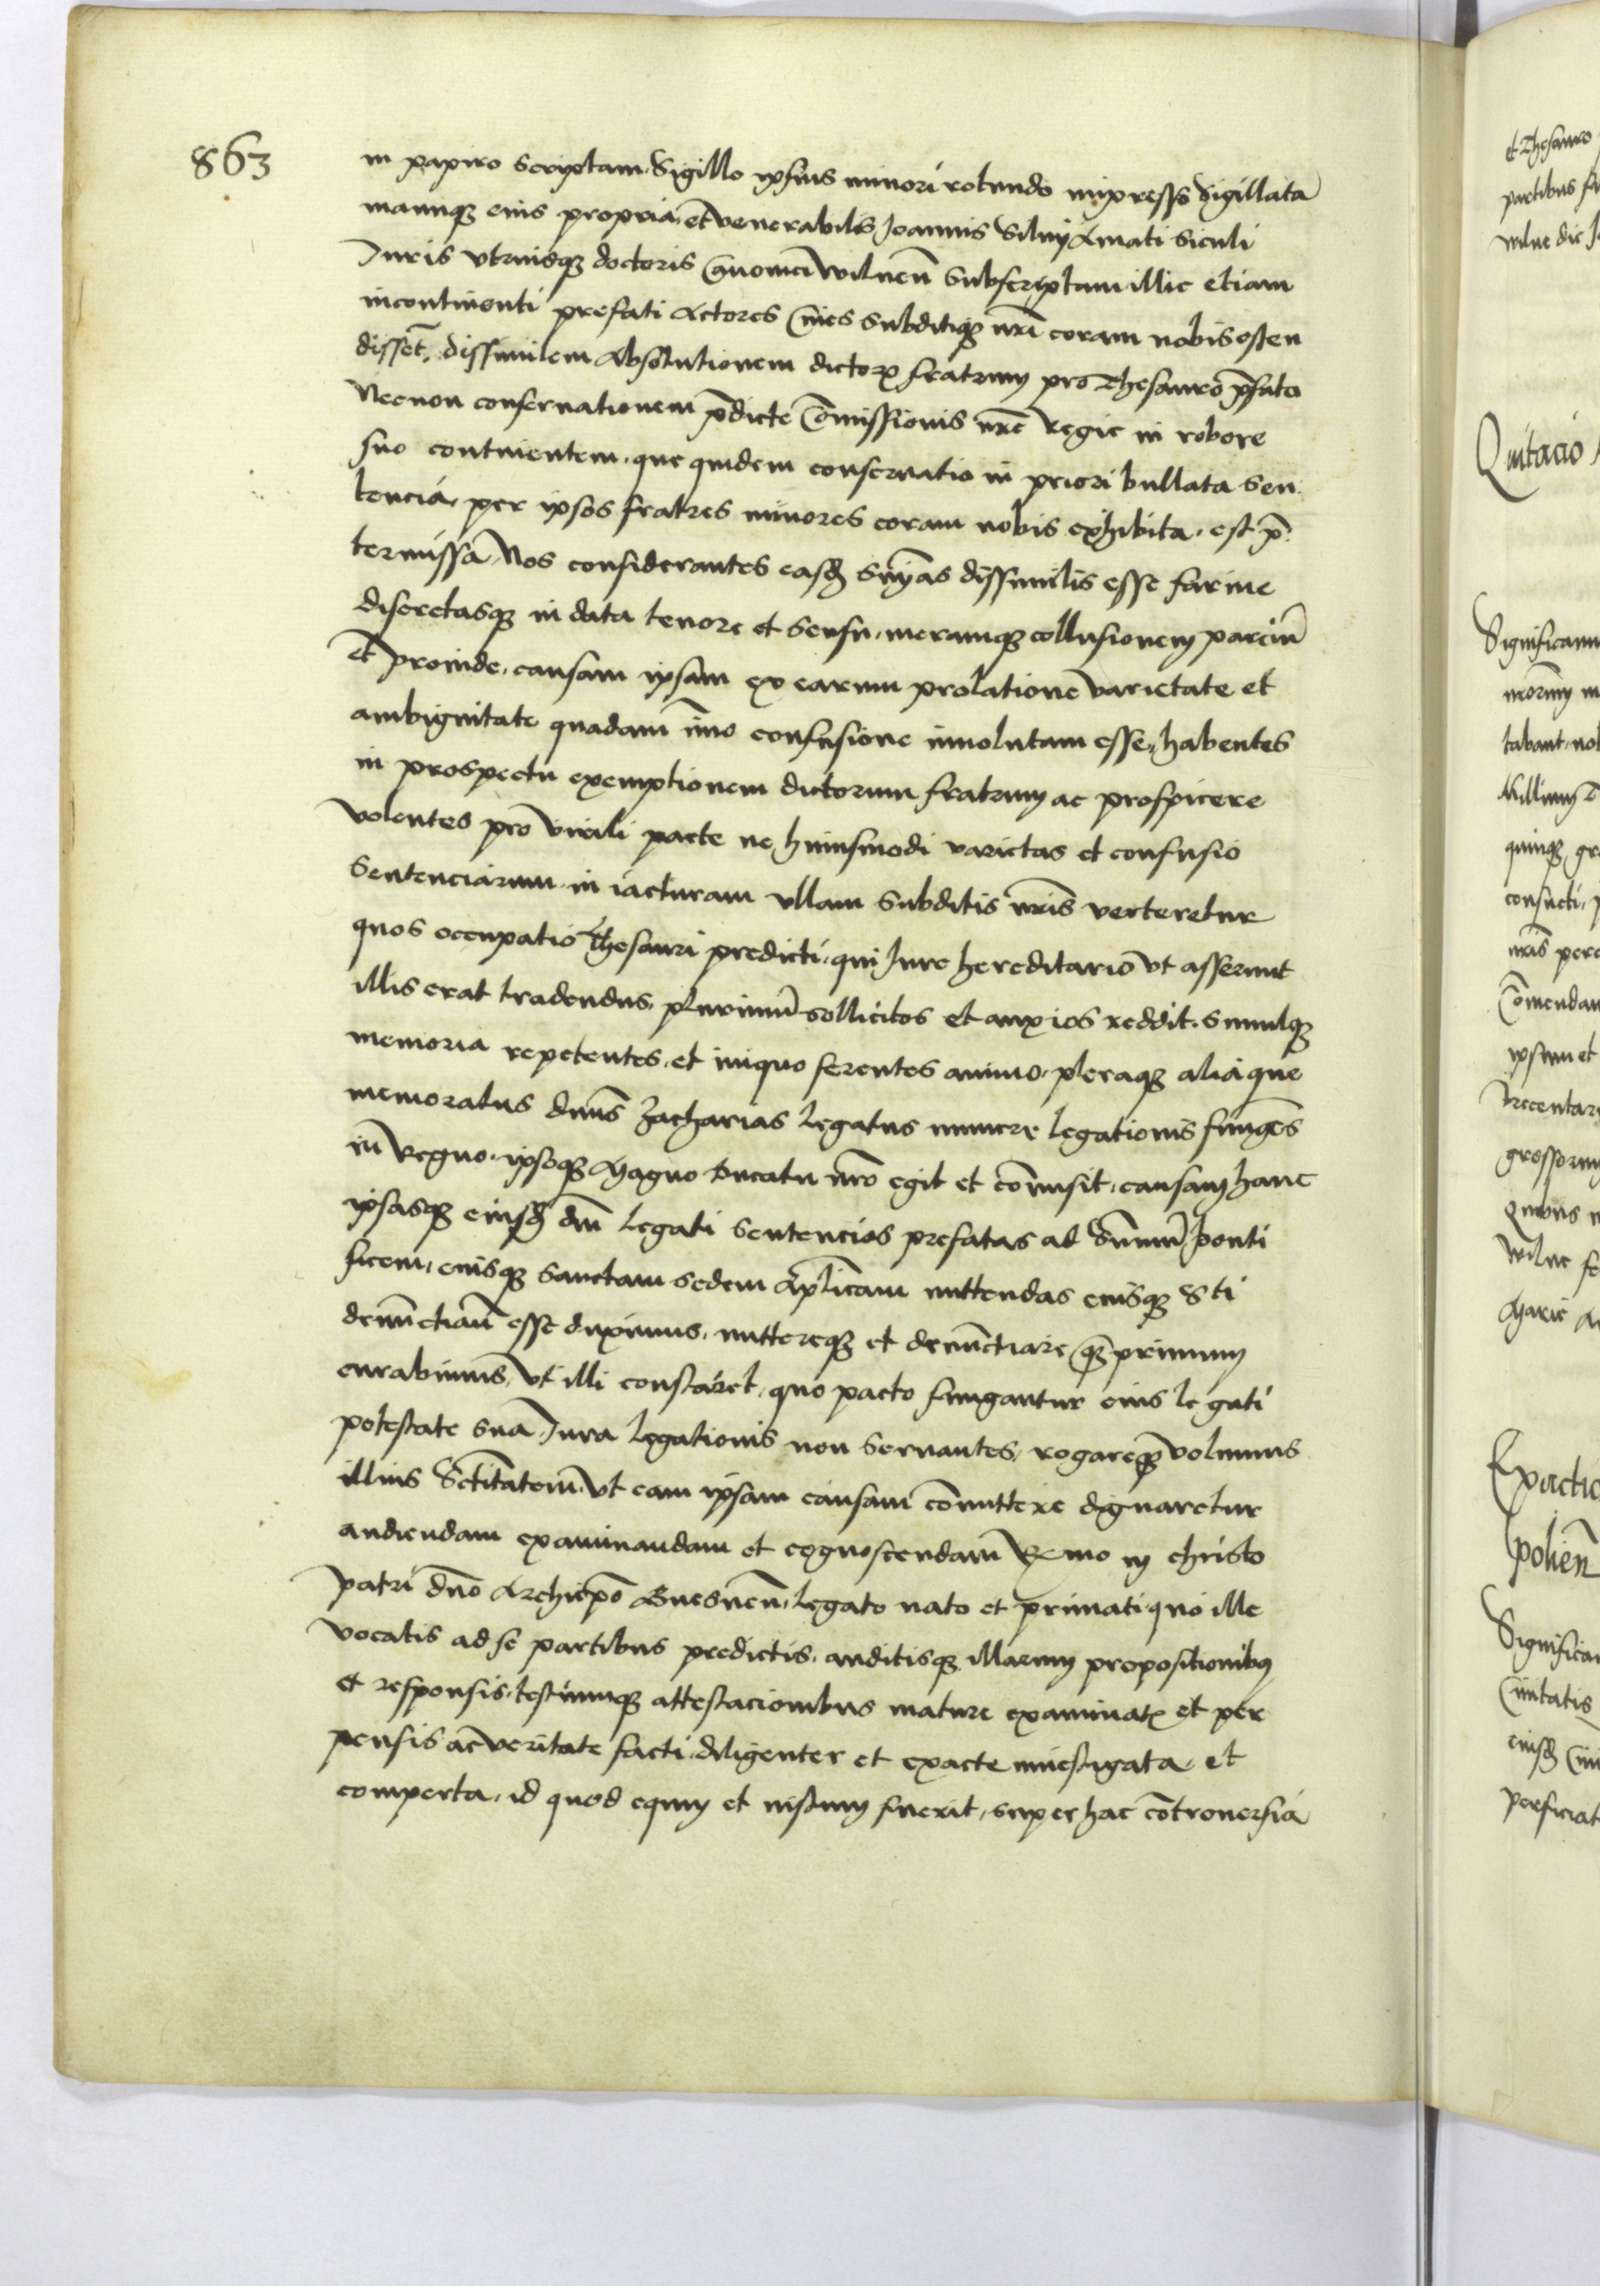 863
in papiro scriptam Sigillo ipsius minori rotundo impresso Sigillata
manuq̃ eius propria et venerabilis Joannis Siluij Amati Siculi
Juris vtriusq̃ doctoris Canonici wilneñ Subscriptam illic etiam
incontinenti prefati Actores Ciues Subditiq̃ nr̃i coram nobis osten
dissẽt. dissimilem Absolutionem dictoꝝ fratrum pro Thesauro p̃fato
Necnon conseruationem p̃dicte Com̃issionis nr̃e Regie in robore
suo continentem. que quidem conseruatio in priori bullata Sen
tencia, per ipsos fratres minores coram nobis exhibita, est p̃
termissa. Nos considerantes easd̃ Sñias dissimilis esse farine
discretasq̃ in data tenore et Sensu, meramq̃ collusionem parciũ
Et proinde, causam ipsam ex earum prolatione varietate et
ambiguitate quadam im̃o confusione inuolutam esse, habentes
in prospectu exemptionem dictorum fratrum ac prospicere
volentes pro virili parte ne huiusmodi varietas et confusio
Sentenciarum in iacturam vllam Subditis nr̃is verteretur
quos occupatio Thesauri predicti, qui Jure hereditario vt asserunt
illis erat tradendus, plurimũ sollicitos et anxios reddit. Simulq̃
memoria repetentes, et iniquo ferentes animo, pleraq̃ alia que
memoratus dñus Zacharias Legatus munere legationis fungẽs
in Regno, ipsoq̃ Magno Ducatu nr̃o egit et com̃isit, causam hanc
ipsasq̃ eiusd̃ dñi Legati Sentencias prefatas ad Sum̃ũ ponti
ficem, eiusq̃ Sanctam sedem Apl̃icam mittendas eiusq̃ S ti
denũctiañ esse duximus, mittereq̃ et denũctiare q̃ primum
curabimus, vt illi constaret, quo pacto fungantur eius legati
potestate sua Jura Legationis non seruantes, rogareq̃ volumus
illius Sctitatem, vt eam ipsam causam com̃ittere dignaretur
audiendam examinandam et cognoscendam R mo in christo
patri dño Archiep̃o Gnesneñ, Legato nato et primati, quo ille
vocatis ad se partibus predictis, auditisq̃ illarum propositionibus
et responsis, testiumq̃ attestacionibus mature examinatꝭ et per
pensis ac veritate facti, diligenter et exacte inuestigata, et
comperta, id quod equum et iustum fuerit, super hac cõtrouersia
et Thesauro
partibus
wilne die
Quitacio
Significamus
tabant
quinq̃
consueti
nr̃is
Com̃endam
ipsum et
grossorum
Quibus
wilne
Marie
Exactio
polieñ
Significamus
Ciuitatis
eiusd̃
perficiat